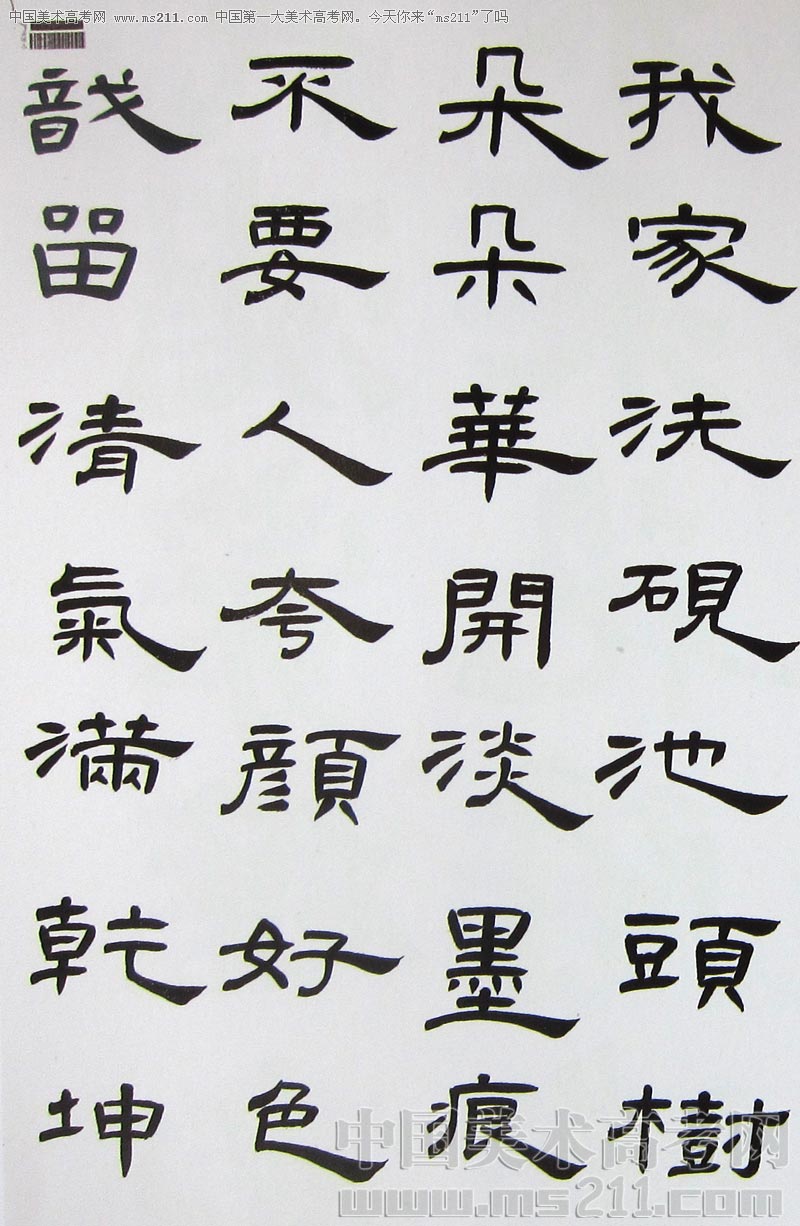 中国美术高考网 www.ms211.com 中国第一大美术高考网。今天你来“ms211”了吗
我家洗硯池頭樹
朵朵華開淡墨痕
不要人夸顔好色
戠留清氣滿乾坤
中国美术高考网
www.ms211.com